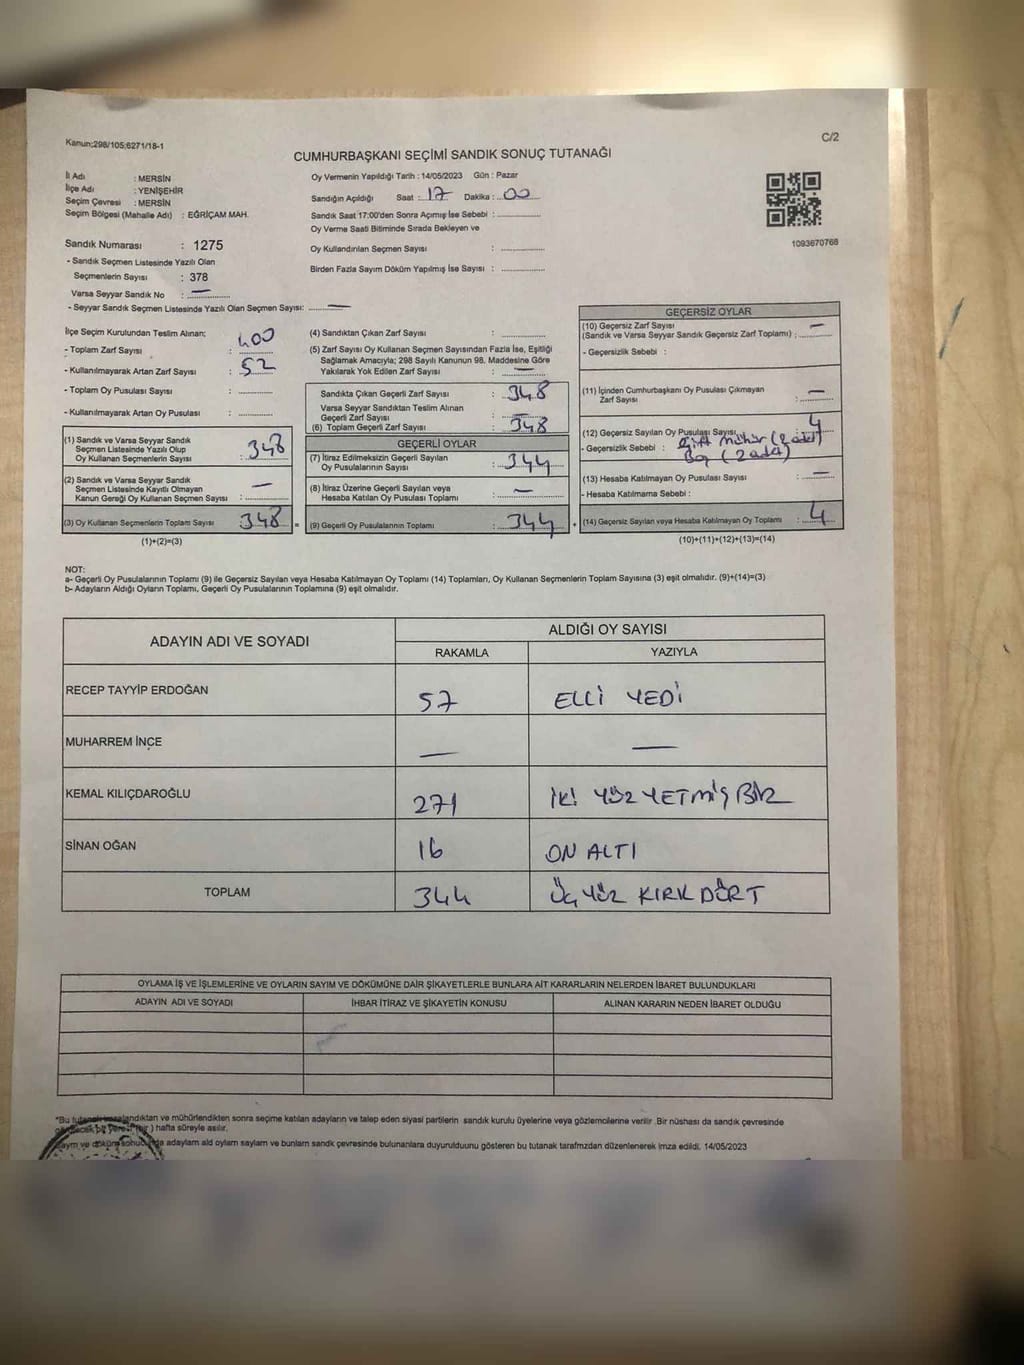 Kanun:298/105;6271/18-1
C/2
CUMHURBAŞKANI SEÇİMİ SANDIK SONUÇ TUTANAĞI
İl Adı : MERSİN
İlçe Adı : YENİŞEHİR
Seçim Çevresi : MERSİN
Seçim Bölgesi (Mahalle Adı) : EĞRİÇAM MAH.
Sandık Numarası : 1275
- Sandık Seçmen Listesinde Yazılı Olan
Seçmenlerin Sayısı : 378
Varsa Seyyar Sandık No : —
- Seyyar Sandık Seçmen Listesinde Yazılı Olan Seçmen Sayısı: —
Oy Vermenin Yapıldığı Tarih : 14/05/2023 Gün : Pazar
Sandığın Açıldığı Saat : 17 Dakika : 00
Sandık Saat 17:00'den Sonra Açımış İse Sebebi :
Oy Verme Saati Bitiminde Sırada Bekleyen ve
Oy Kullandırılan Seçmen Sayısı :
Birden Fazla Sayım Döküm Yapılmış İse Sayısı :
1093670768
İlçe Seçim Kurulundan Teslim Alınan;
- Toplam Zarf Sayısı : 400
- Kullanılmayarak Artan Zarf Sayısı : 52
- Toplam Oy Pusulası Sayısı :
- Kullanılmayarak Artan Oy Pusulası :
(1) Sandık ve Varsa Seyyar Sandık
Seçmen Listesinde Yazılı Olup
Oy Kullanan Seçmenlerin Sayısı : 348
(2) Sandık ve Varsa Seyyar Sandık
Seçmen Listesinde Kayıtlı Olmayan
Kanun Gereği Oy Kullanan Seçmen Sayısı : —
(3) Oy Kullanan Seçmenlerin Toplam Sayısı 348
(1)+(2)=(3)
(4) Sandıktan Çıkan Zarf Sayısı :
(5) Zarf Sayısı Oy Kullanan Seçmen Sayısından Fazla İse, Eşitliği
Sağlamak Amacıyla; 298 Sayılı Kanunun 98. Maddesine Göre
Yakılarak Yok Edilen Zarf Sayısı : —
Sandıkta Çıkan Geçerli Zarf Sayısı : 348
Varsa Seyyar Sandıktan Teslim Alınan
Geçerli Zarf Sayısı : —
(6) Toplam Geçerli Zarf Sayısı : 348
GEÇERLİ OYLAR
(7) İtiraz Edilmeksizin Geçerli Sayılan
Oy Pusulalarının Sayısı : 344
(8) İtiraz Üzerine Geçerli Sayılan veya
Hesaba Katılan Oy Pusulası Toplamı : —
(9) Geçerli Oy Pusulalarının Toplamı : 344
GEÇERSİZ OYLAR
(10) Geçersiz Zarf Sayısı
(Sandık ve Varsa Seyyar Sandık Geçersiz Zarf Toplamı) : —
- Geçersizlik Sebebi :
(11) İçinden Cumhurbaşkanı Oy Pusulası Çıkmayan
Zarf Sayısı : —
(12) Geçersiz Sayılan Oy Pusulası Sayısı 4
- Geçersizlik Sebebi : Çift Mühür (2 adet)
Boş (2 adet)
(13) Hesaba Katılmayan Oy Pusulası Sayısı : —
- Hesaba Katılmama Sebebi :
(14) Geçersiz Sayılan veya Hesaba Katılmayan Oy Toplamı : 4
(10)+(11)+(12)+(13)=(14)
NOT:
a- Geçerli Oy Pusulalarının Toplamı (9) ile Geçersiz Sayılan veya Hesaba Katılmayan Oy Toplamı (14) Toplamları, Oy Kullanan Seçmenlerin Toplam Sayısına (3) eşit olmalıdır. (9)+(14)=(3)
b- Adayların Aldığı Oyların Toplamı, Geçerli Oy Pusulalarının Toplamına (9) eşit olmalıdır.
ADAYIN ADI VE SOYADI
ALDIĞI OY SAYISI
RAKAMLA YAZIYLA
RECEP TAYYİP ERDOĞAN 57 ELLİ YEDİ
MUHARREM İNCE — —
KEMAL KILIÇDAROĞLU 271 İKİ YÜZ YETMİŞ BİR
SİNAN OĞAN 16 ON ALTI
TOPLAM 344 ÜÇ YÜZ KIRK DÖRT
OYLAMA İŞ VE İŞLEMLERİNE VE OYLARIN SAYIM VE DÖKÜMÜNE DAİR ŞİKAYETLERLE BUNLARA AİT KARARLARIN NELERDEN İBARET BULUNDUKLARI
ADAYIN ADI VE SOYADI İHBAR İTİRAZ VE ŞİKAYETİN KONUSU ALINAN KARARIN NEDEN İBARET OLDUĞU
*Bu tutanak imzalandıktan ve mühürlendikten sonra seçime katılan adayların ve talep eden siyasi partilerin sandık kurulu üyelerine veya gözlemcilerine verilir. Bir nüshası da sandık çevresinde
) hafta süreyle asılır.
ve döküm adayların aldı oyların sayların ve bunların sandık çevresinde bulunanlara duyurulduunu gösteren bu tutanak tarafmzdan düzenlenerek imza edildi. 14/05/2023